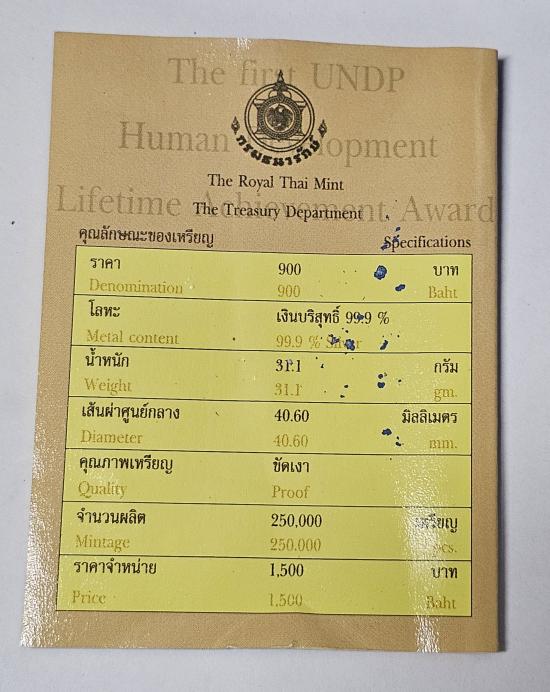 The first UNDP
Human Development
Lifetime Achievement Award
กรมธนารักษ์
The Royal Thai Mint
The Treasury Department
คุณลักษณะของเหรียญ Specifications
ราคา 900 บาท
Denomination 900 Baht
โลหะ เงินบริสุทธิ์ 99.9 %
Metal content 99.9 % Silver
น้ำหนัก 31.1 กรัม
Weight 31.1 gm.
เส้นผ่าศูนย์กลาง 40.60 มิลลิเมตร
Diameter 40.60 mm.
คุณภาพเหรียญ ขัดเงา
Quality Proof
จำนวนผลิต 250,000 เหรียญ
Mintage 250.000 pcs.
ราคาจำหน่าย 1,500 บาท
Price 1,500 Baht